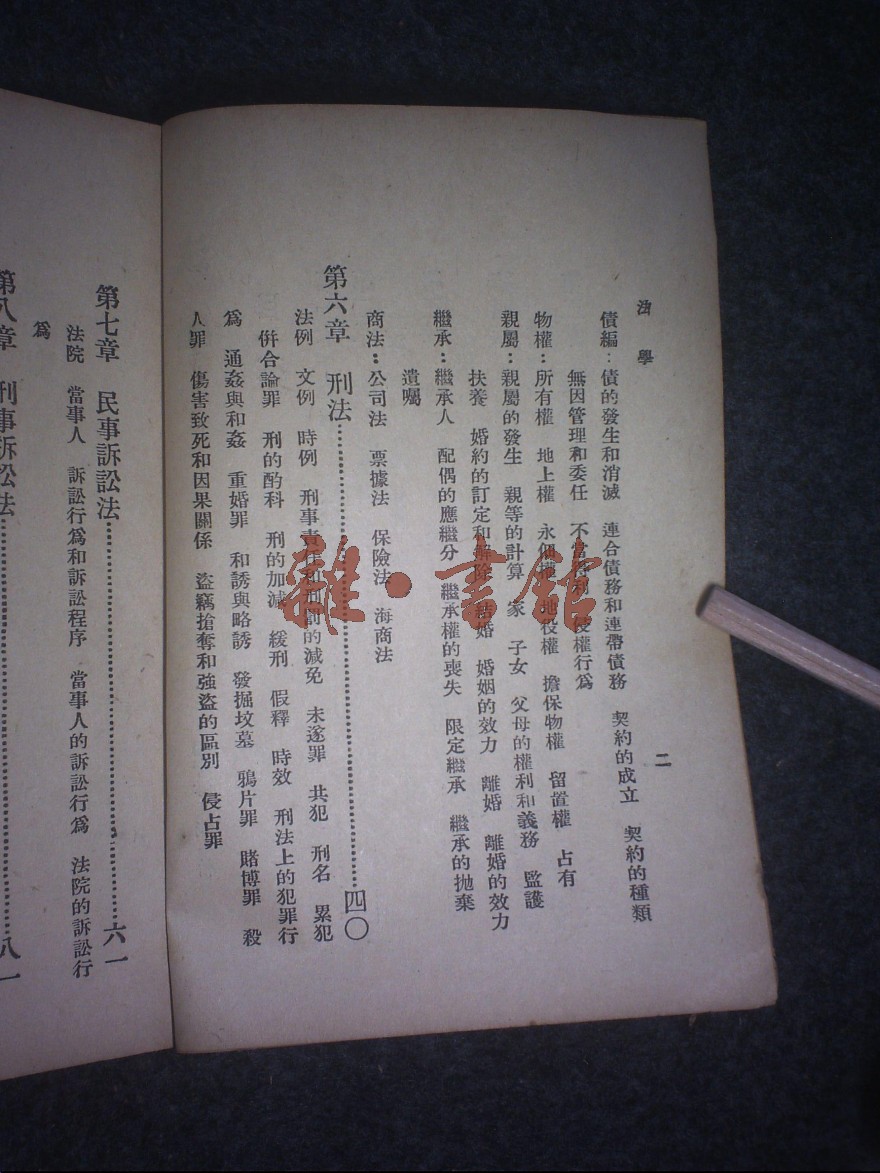 法學
二
債編：債的發生和消滅　連合債務和連帶債務　契約的成立　契約的種類
無因管理和委任　不當得利　侵權行爲
物權：所有權　地上權　永佃權　地役權　擔保物權　留置權　占有
親屬：親屬的發生　親等的計算　家　子女　父母的權利和義務　監護
扶養　婚約的訂定和解除　結婚　婚姻的效力　離婚　離婚的效力
繼承：繼承人　配偶的應繼分　繼承權的喪失　限定繼承　繼承的拋棄
遺囑
商法：公司法　票據法　保險法　海商法
第六章　刑法……四〇
法例　文例　時例　刑事責任和刑罰的減免　未遂罪　共犯　刑名　累犯
併合論罪　刑的酌科　刑的加減　緩刑　假釋　時效　刑法上的犯罪行
爲　通姦與和姦　重婚罪　和誘與略誘　發掘坟墓　鴉片罪　賭博罪　殺
人罪　傷害致死和因果關係　盜竊搶奪和強盜的區別　侵占罪
第七章　民事訴訟法……六一
法院　當事人　訴訟行爲和訴訟程序　當事人的訴訟行爲　法院的訴訟行
爲
第八章　刑事訴訟法……八一
雜·書館